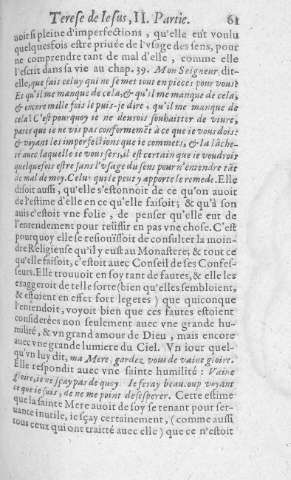 Terese de Iesus, II. Partie. 61
uoit si pleine d'imperfections, qu'elle eut voulu
quelquesfois estre priuée de l'vsage des sens, pour
ne comprendre tant de mal d'elle, comme elle
l'escrit dans sa vie au chap. 39. Mon Seigneur dit-
elle, que fais celuy qui ne se met tout en pieces pour vous?
Et qu'il me manque de cela, & qu'il me manque de cela;
& encore mille fois le puis-je dire, qu'il me manque de
cela! C'est pourquoy ie ne deurois souhaitter de viure,
parce que ie ne vis pas conformemẽt à ce que ie vous dois:
& voyant les imperfections que ie commets, & la lâche-
té auec laquelle ie vous sers, il est certain que ie voudrois
quelquesfois estre sans l'vsage du sens pour n'entendre tãt
de mal de moy. Celuy qui le peut y apporte le remede. Elle
disoit aussi, qu'elle s'estonnoit de ce qu'on auoit
de l'estime d'elle en ce qu'elle faisoit; & qu'à son
auis c'estoit vne folie, de penser qu'elle eut de
l'entendement pour reüssir en pas vne chose. C'est
pourquoy elle se resoüissoit de consulter la moin-
dre Religieuse qu'il y eust au Monastere; & tout ce
qu'elle faisoit, c'estoit auec Conseil de ses Confes-
seurs. Elle trouuoit en soy tant de fautes, & elle les
exaggeroit de telle sorte (bien qu'elles sembloient,
& estoient en effet fort legeres) que quiconque
l'entendoit, voyoit bien que ces fautes estoient
considerées non seulement auec vne grande hu-
milité, & vn grand amour de Dieu, mais encore
auec vne grande lumiere du Ciel. Vn iour quel-
qu'vn luy dit, ma Mere, gardez vous de vaine gloire.
Elle respondit auec vne sainte humilité: Vaine
Gloire, ie ne sçay pas de quoy. Ie feray beaucoup voyant
ce que ie suis, de ne me point desesperer. Cette estime
que la sainte Mere auoit de soy se tenant pour ser-
uante inutile, ie sçay certainement, (comme aussi
tous ceux qui ont traitté auec elle) que ce n'estoit